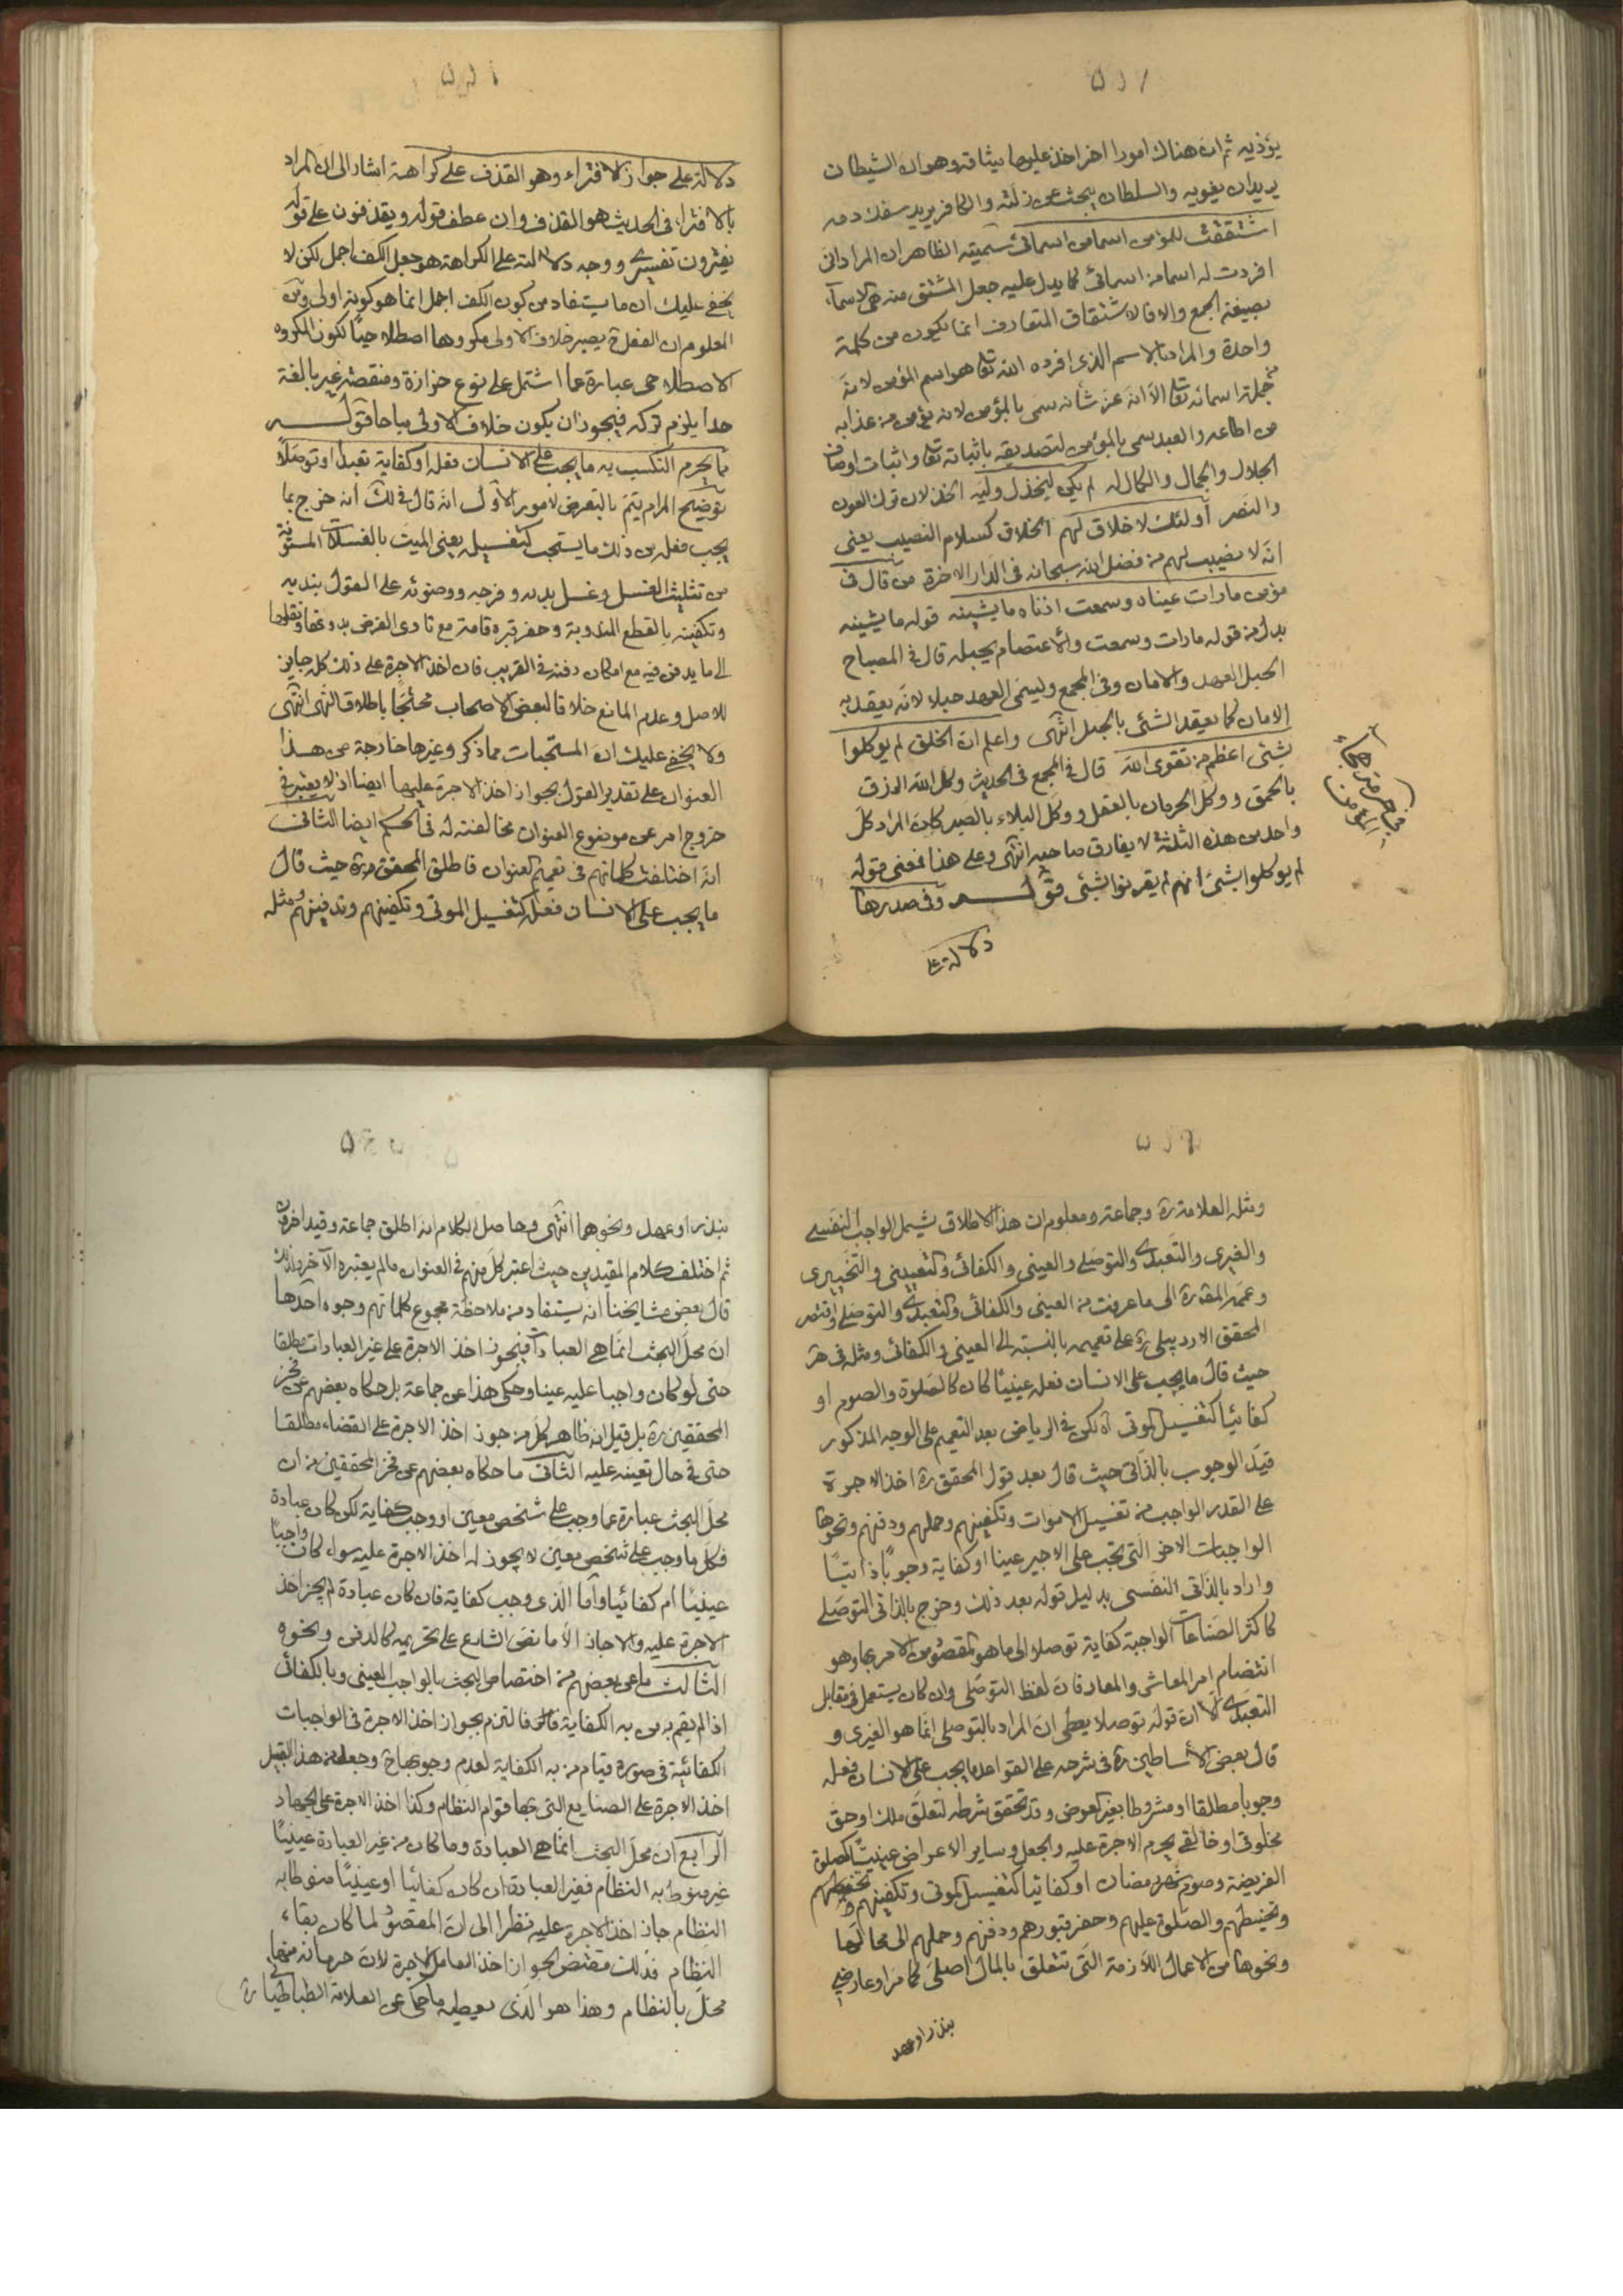 يؤذيه ثم ان هناك امورا اخر اخذ عليها ميثاقه وهو ان الشيطان
يريد ان يغويه والسلطان يبحث عن زلته والكافر يريد سفك دمه
اشتققت للمؤمن اسما من اسمائى سميته الظاهر ان المراد انى
افردت له اسما من اسمائى كما يدل عليه جعل المشتق منه هى الاسماء
بصيغة الجمع والا فالاشتقاق المتعارف انما يكون من كلمة
واحدة والمراد بالاسم الذى افرده الله تعالى هو اسم المؤمن لانه
من جملة اسمائه تعالى الا انه عز شانه سمى بالمؤمن لانه يؤمن من عذابه
من اطاعه والعبد سمى بالمؤمن لتصديقه باثباته تعالى واثبات اوصاف
الجلال والجمال والكمال له لم يكن ليخذل وليه الخذلان ترك العون
والنصر أولئك لا خلاق لهم الخلاق كسلام النصيب يعنى
انه لا نصيب لهم من فضل الله سبحانه فى الدار الاخرة من قال فى
مؤمن ما رات عيناه وسمعت اذناه ما يشينه قوله ما يشينه
بدل من قوله ما رات وسمعت والاعتصام بحبله قال فى المصباح
الحبل العهد والامان وفى المجمع وليسمى العهد حبلا لانه يعقد به
الامان كما يعقد الشئ بالحبل انتهى واعلم ان الخلق لم يوكلوا
بشئ اعظم من تقوى الله قال فى المجمع فى الحديث وكل الله الرزق
بالحمق ووكل الحرمان بالعقل ووكل البلاء بالصبر كان المراد كل
واحد من هذه الثلثة لا يفارق صاحبه انتهى وعلى هذا فمعنى قوله
لم يوكلوا بشئ انهم لم يقرنوا بشئ قوله وفى صدرها
دلالة على
دلالة على جواز الافتراء وهو القذف على كراهة اشار الى ان المراد
بالافتراء فى الحديث هو القذف وان عطف قوله ويقذفون على قوله
يفترون تفسيرى ووجه دلالته على الكراهة هو جعل الكف اجمل لكن لا
يخفى عليك ان ما يستفاد من كون الكف اجمل انما هو كونه اولى ومن
المعلوم ان الفعل ح يصير خلاف الاولى مكروها اصطلاحيا لكون المكروه
الاصطلاحى عبارة عما اشتمل على نوع حزازة ومنقصة غير بالغة
حدا يلزم تركه فيجوز ان يكون خلاف الاولى مباحا قوله
مما يحرم التكسب به ما يجب على الانسان فعله او كفاية تعبدا او توصلا
توضيح المرام يتم بالتعرض لامور الاول انه قال فى لك انه خرج بما
يجب فعله من ذلك ما يستحب كتغسيله يعنى الميت بالغسلات المسنونة
من تثليث الغسل وغسل بدنه وفرجه ووضوئه على القول بندبه
وتكفينه بالقطع المندوبة وحفر قبره قامة مع تادى الفرض بدونها ونقله
الى ما يدفن فيه مع امكان دفنه فى القريب فان اخذ الاجرة على ذلك كله جايز
للاصل وعدم المانع خلافا لبعض الاصحاب محتجا باطلاق النهى انتهى
ولا يخفى عليك ان المستحبات مما ذكر وغيرها خارجة عن هذا
العنوان على تقدير القول بجواز اخذ الاجرة عليها ايضا اذ لا يعتبر فى
خروج امر عن موضوع العنوان مخالفته له فى الحكم ايضا الثانى
انه اختلفت كلماتهم فى تعميم العنوان فاطلق المحقق ره حيث قال
ما يجب على الانسان فعله كتغسيل الموتى وتكفينهم وتدفينهم ومثله
ومثله العلامة ره وجماعة ومعلوم ان هذا الاطلاق يشمل الواجب النفسى
والغيرى والتعبدى والتوصلى والعينى والكفائى والتعيينى والتخييرى
وعمم المقدارة الى ما عرفت من العينى والكفائى والتعبدى والتوصلى واقتصر
المحقق الاردبيلى ره على تعميمه بالنسبة الى العينى والكفائى ومثله فى هر
حيث قال ما يجب على الانسان فعله عينيا كان كالصلوة والصوم او
كفائيا كتغسيل الموتى آه لكن فى الرياض بعد التعميم على الوجه المذكور
قيد الوجوب بالذاتى حيث قال بعد قول المحقق ره اخذ الاجرة
على القدر الواجب من تغسيل الاموات وتكفينهم وحملهم ودفنهم ونحوها
الواجبات الاخر التى تجب على الاجير عينا او كفاية وجوبا ذاتيا
واراد بالذاتى النفسى بدليل قوله بعد ذلك وخرج بالذاتى التوصلى
كاكثر الصناعات الواجبة كفاية توصلا الى ما هو المقصود من الامر بها وهو
انتظام امر المعاش والمعاد فان لفظ التوصلى وان كان يستعمل فى مقابل
التعبدى الا ان قوله توصلا يعطى ان المراد بالتوصلى انما هو الغيرى و
قال بعض الاساطين ره فى شرحه على القواعد ما يجب على الانسان فعله
وجوبا مطلقا او مشروطا بغير العوض وقد تحقق شرطه لتعلق ملك او حق
مخلوقى او خالقى يحرم الاجرة عليه والجعل وساير الاعراض عينيا كصلوة
الفريضة وصوم شهر رمضان او كفائيا كتغسيل الموتى وتكفينهم و
وتحنيطهم والصلوة عليهم وحفر قبورهم ودفنهم وحملهم الى محالها
ونحوها من الاعمال اللازمة التى تتعلق بالمال اصلى كما مر او عارضى
بنذر او عهد
بنذر او عهد ونحوهما انتهى وحاصل الكلام انه اطلق جماعة وقيد اخرون
ثم اختلف كلام المقيدين حيث اعتبر كل منهم فى العنوان ما لم يعتبره الآخر ولذلك
قال بعض مشايخنا انه يستفاد من ملاحظة مجموع كلماتهم وجوه احدها
ان محل البحث انما هى العبادات فيجوز اخذ الاجرة على غير العبادات مطلقا
حتى لو كان واجبا عليه عينا وحكى هذا عن جماعة بل حكاه بعضهم عن فخر
المحققين ره بل قيل انه ظاهر كل من جوز اخذ الاجرة على القضاء مطلقا
حتى فى حال تعينه عليه الثانى ما حكاه بعضهم عن فخر المحققين من ان
محل البحث عبارة عما وجب على شخص معين او وجب كفاية لكن كان عبادة
فكل ما وجب على شخص معين لا يجوز له اخذ الاجرة عليه سواء كان واجبا
عينيا ام كفائيا واما الذى وجب كفاية فان كان عبادة لم يجز اخذ
الاجرة عليه والا جاز الا ما نص الشارع على تحريمه كالدفن ونحوه
الثالث ما عن بعضهم من اختصاص البحث بالواجب العينى وبالكفائى
اذا لم يقم به من به الكفاية فالتزم بجواز اخذ الاجرة فى الواجبات
الكفائية فى صورة قيام من به الكفاية لعدم وجوبها ح وجعله من هذا القبيل
اخذ الاجرة على الصنايع التى بها قوام النظام وكذا اخذ الاجرة على الجهاد
الرابع ان محل البحث انما هى العبادة وما كان من غير العبادة عينيا
غير منوط به النظام فغير العبادة ان كان كفائيا او عينيا منوطا به
النظام جاز اخذ الاجرة عليه نظرا الى ان المقصود لما كان بقاء
النظام فذلك مقتض لجواز اخذ العامل الاجرة لان حرمانه منها
محل بالنظام وهذا هو الذى يعطيه ما حكى عن العلامة الطباطبائى ره